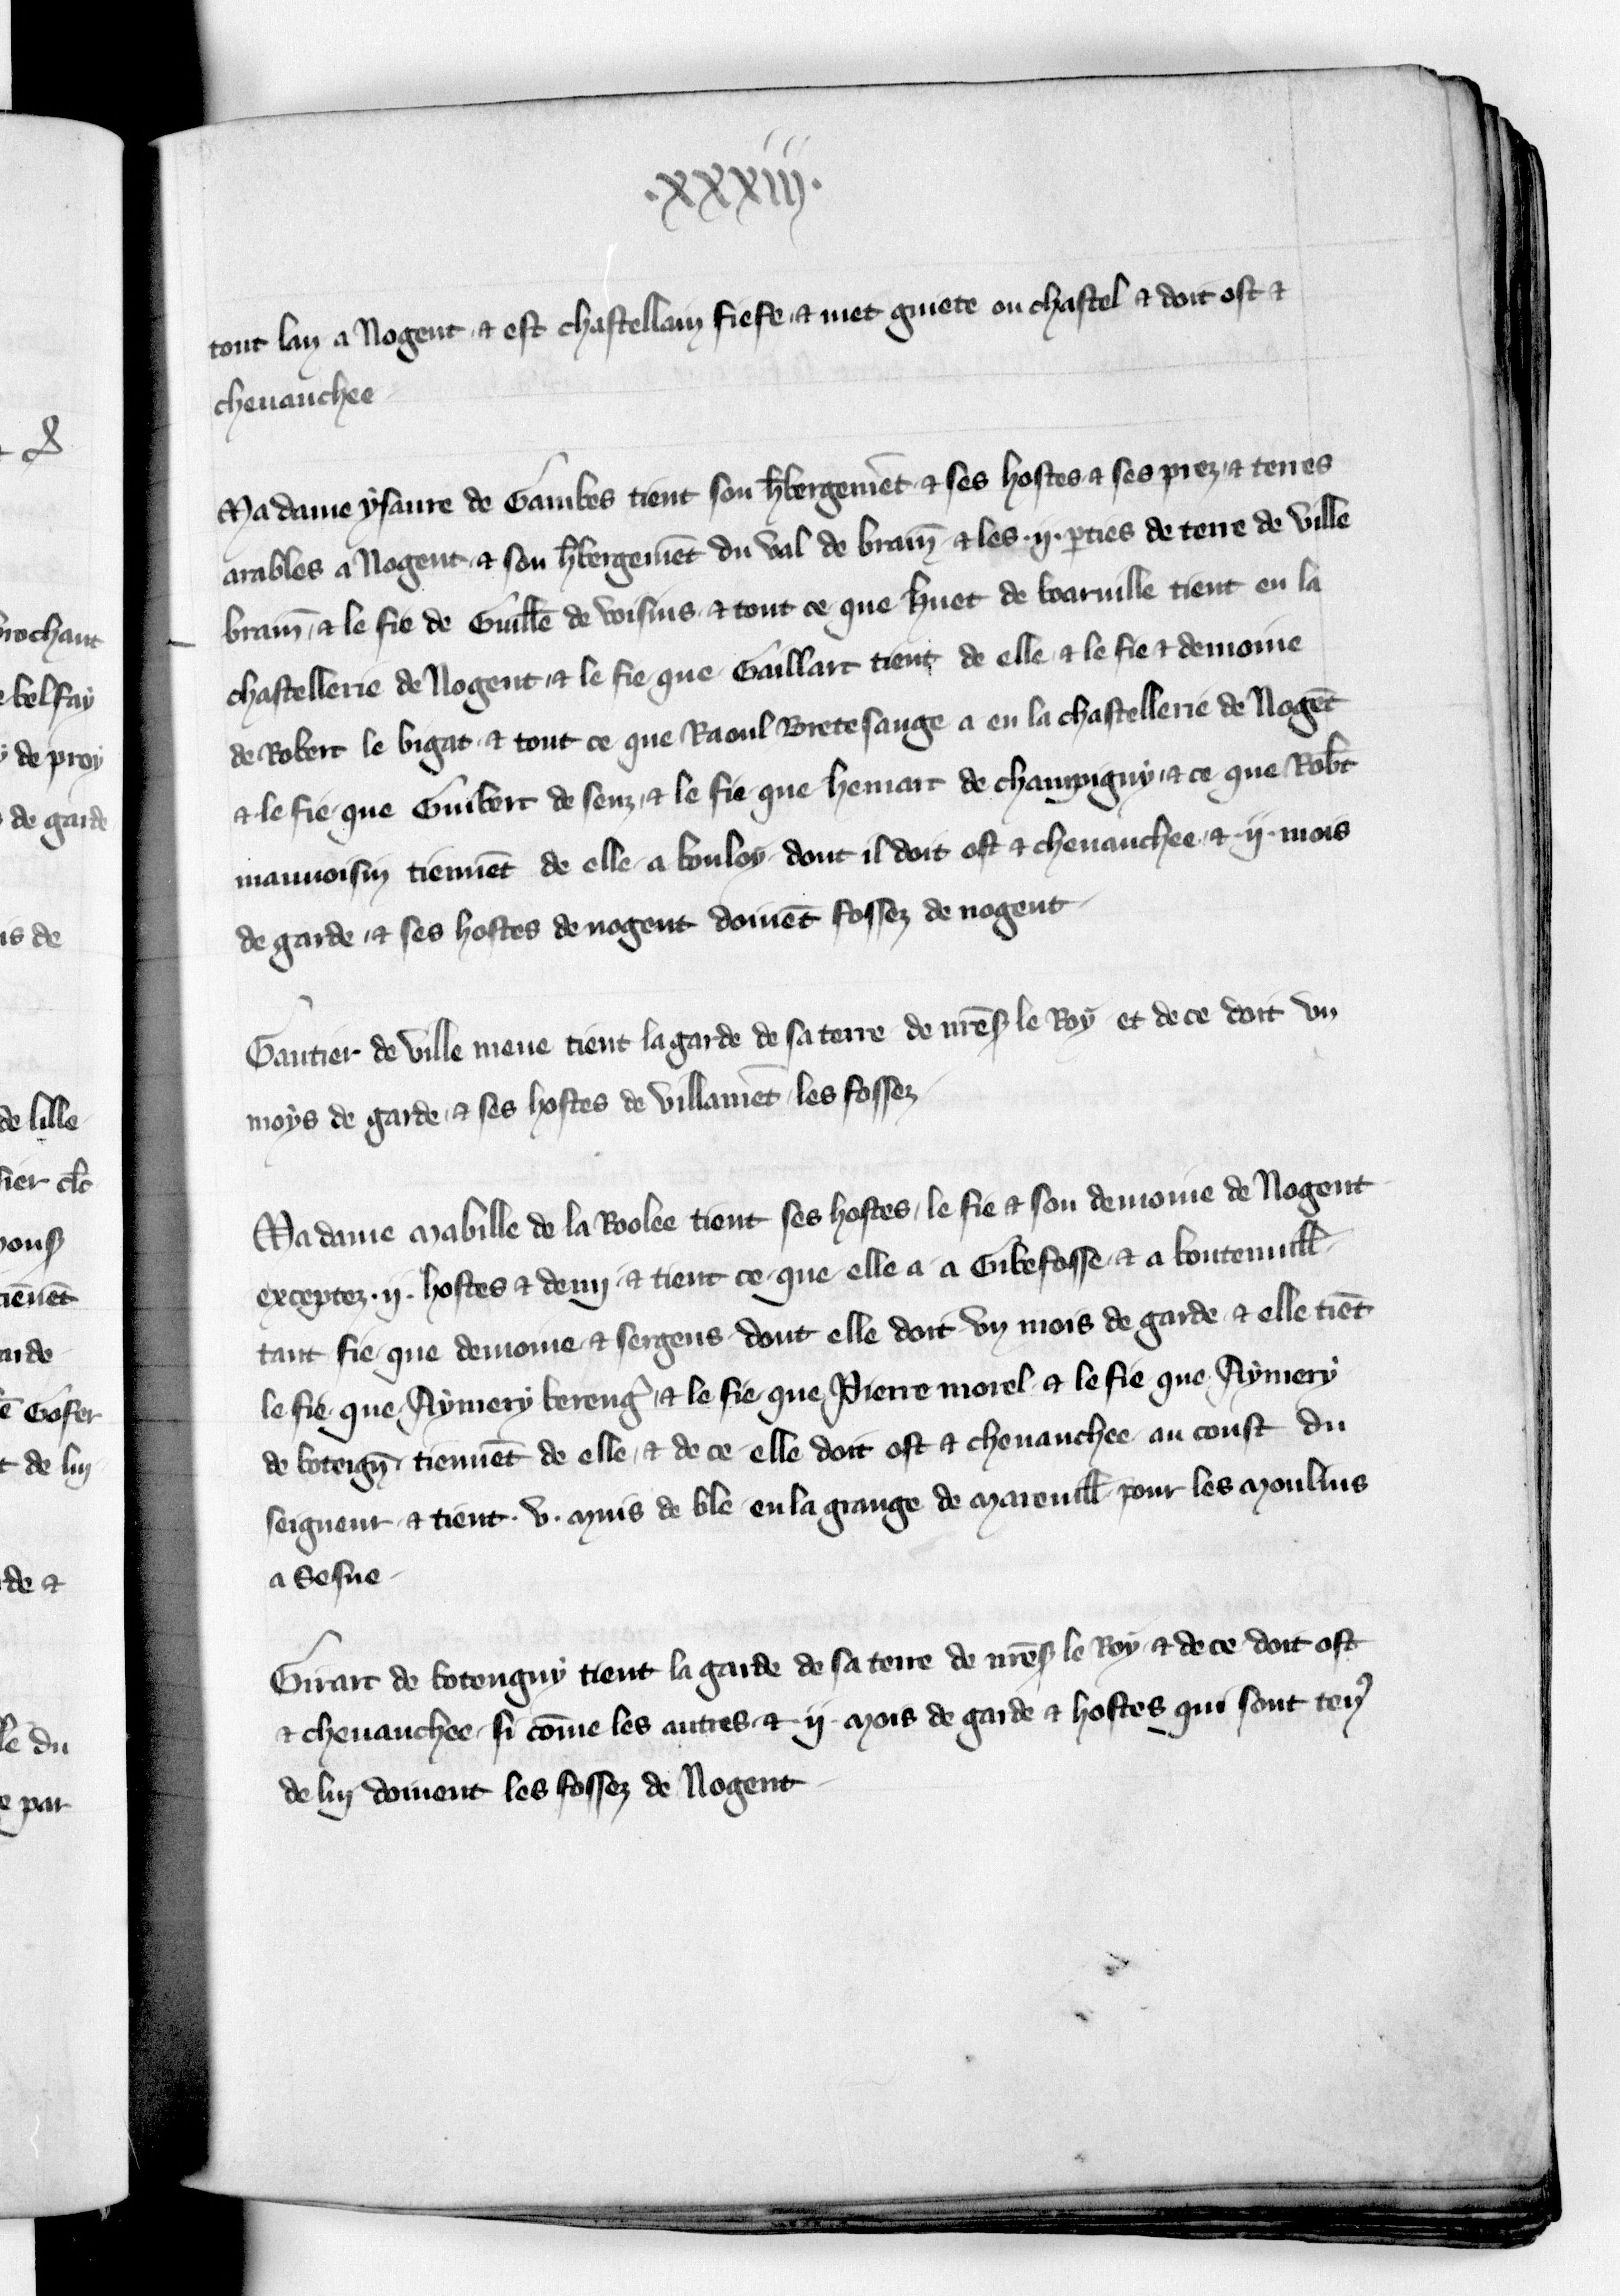 .xxxiij.
tout lan a Nogent & est chastellain fiefe & met guiete ou chastel & doit ost &
cheuauchee
Madame ysaure de Gambes tient son hb̄ergemēt & ses hostes & ses prez & terres
arables a Nogent & son hb̄ergemēt du val de bram̄ & les .ij. ꝑties de terre de ville
bram̄ & le fie de Guillē de voisins & tout ce que huet de boaruille tient en la
chastellerie de Nogent & le fie que Gaillart tient de elle & le fie & demoine
de Robert le bigat & tout ce que Raoul Bretesauge a en la chastellerie de Nogēt
& le fie que Guibert de senz & le fie que hemart de champigny & ce que Robt̄
mauuoisin tiennēt de elle a bouloy dont il doit ost & cheuauchee & ij mois
de garde & ses hostes de nogent doiuēt fossez de nogent
Gautier de ville meue tient la garde de sa terre de nrēs le Roy et de ce doit vn
moys de garde & ses hostes de villamēt les fossez
Madame Mabille de la Roolee tient ses hostes le fie & son demoine de Nogent
exceptez .ij. hostes & demy & tient ce que elle a a Gibefosse & a boutenuill
tant fie que demoine & sergens dont elle doit vn mois de garde & elle tiēt
le fie que Aymery bereng̕ & le fie que Pierre morel & le fie que Aymery
de boteign̄ tiennēt de elle & de ce elle doit ost & cheuauchee au coust du
seigneur & tient .v. muis de ble en la grange de Mareuill pour les Moulins
a Sesne
Girart de botenguy tient la garde de sa terre de nrēs le Roy & de ce doit ost
& cheuauchee si cōme les autres & ij mois de garde & hostes qui sont ten9
de luy doiuent les fossez de Nogent
rochant
belfay
de proy
de garde
is de
de lille
sier clc̄
tiēnēt
arde
Gofer
t de luy
de &
le du
e par